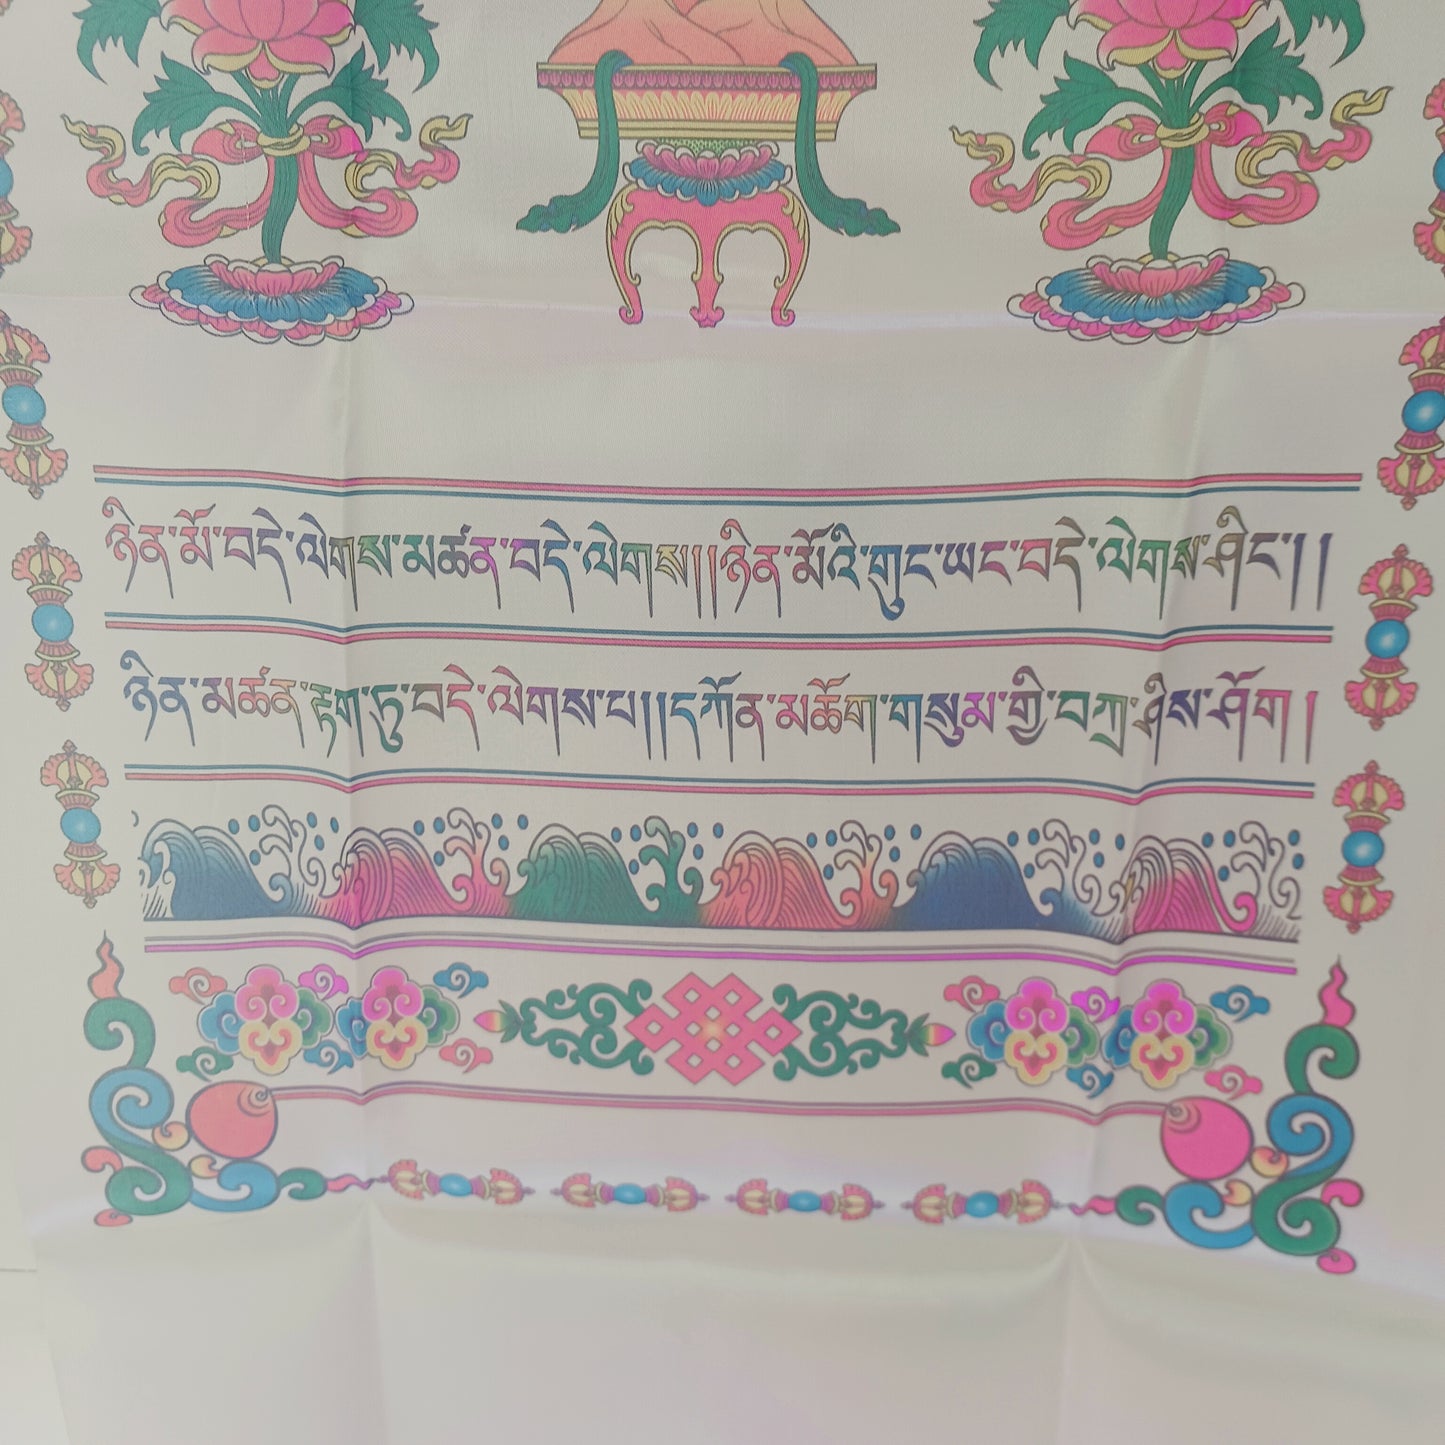 ཉིན་མོ་བདེ་ལེགས་མཚན་བདེ་ལེགས།།ཉིན་མོའི་གུང་ཡང་བདེ་ལེགས་ཤིང་།།
ཉིན་མཚན་རྟག་ཏུ་བདེ་ལེགས་པ།།དཀོན་མཆོག་གསུམ་གྱི་བཀྲ་ཤིས་ཤོག།